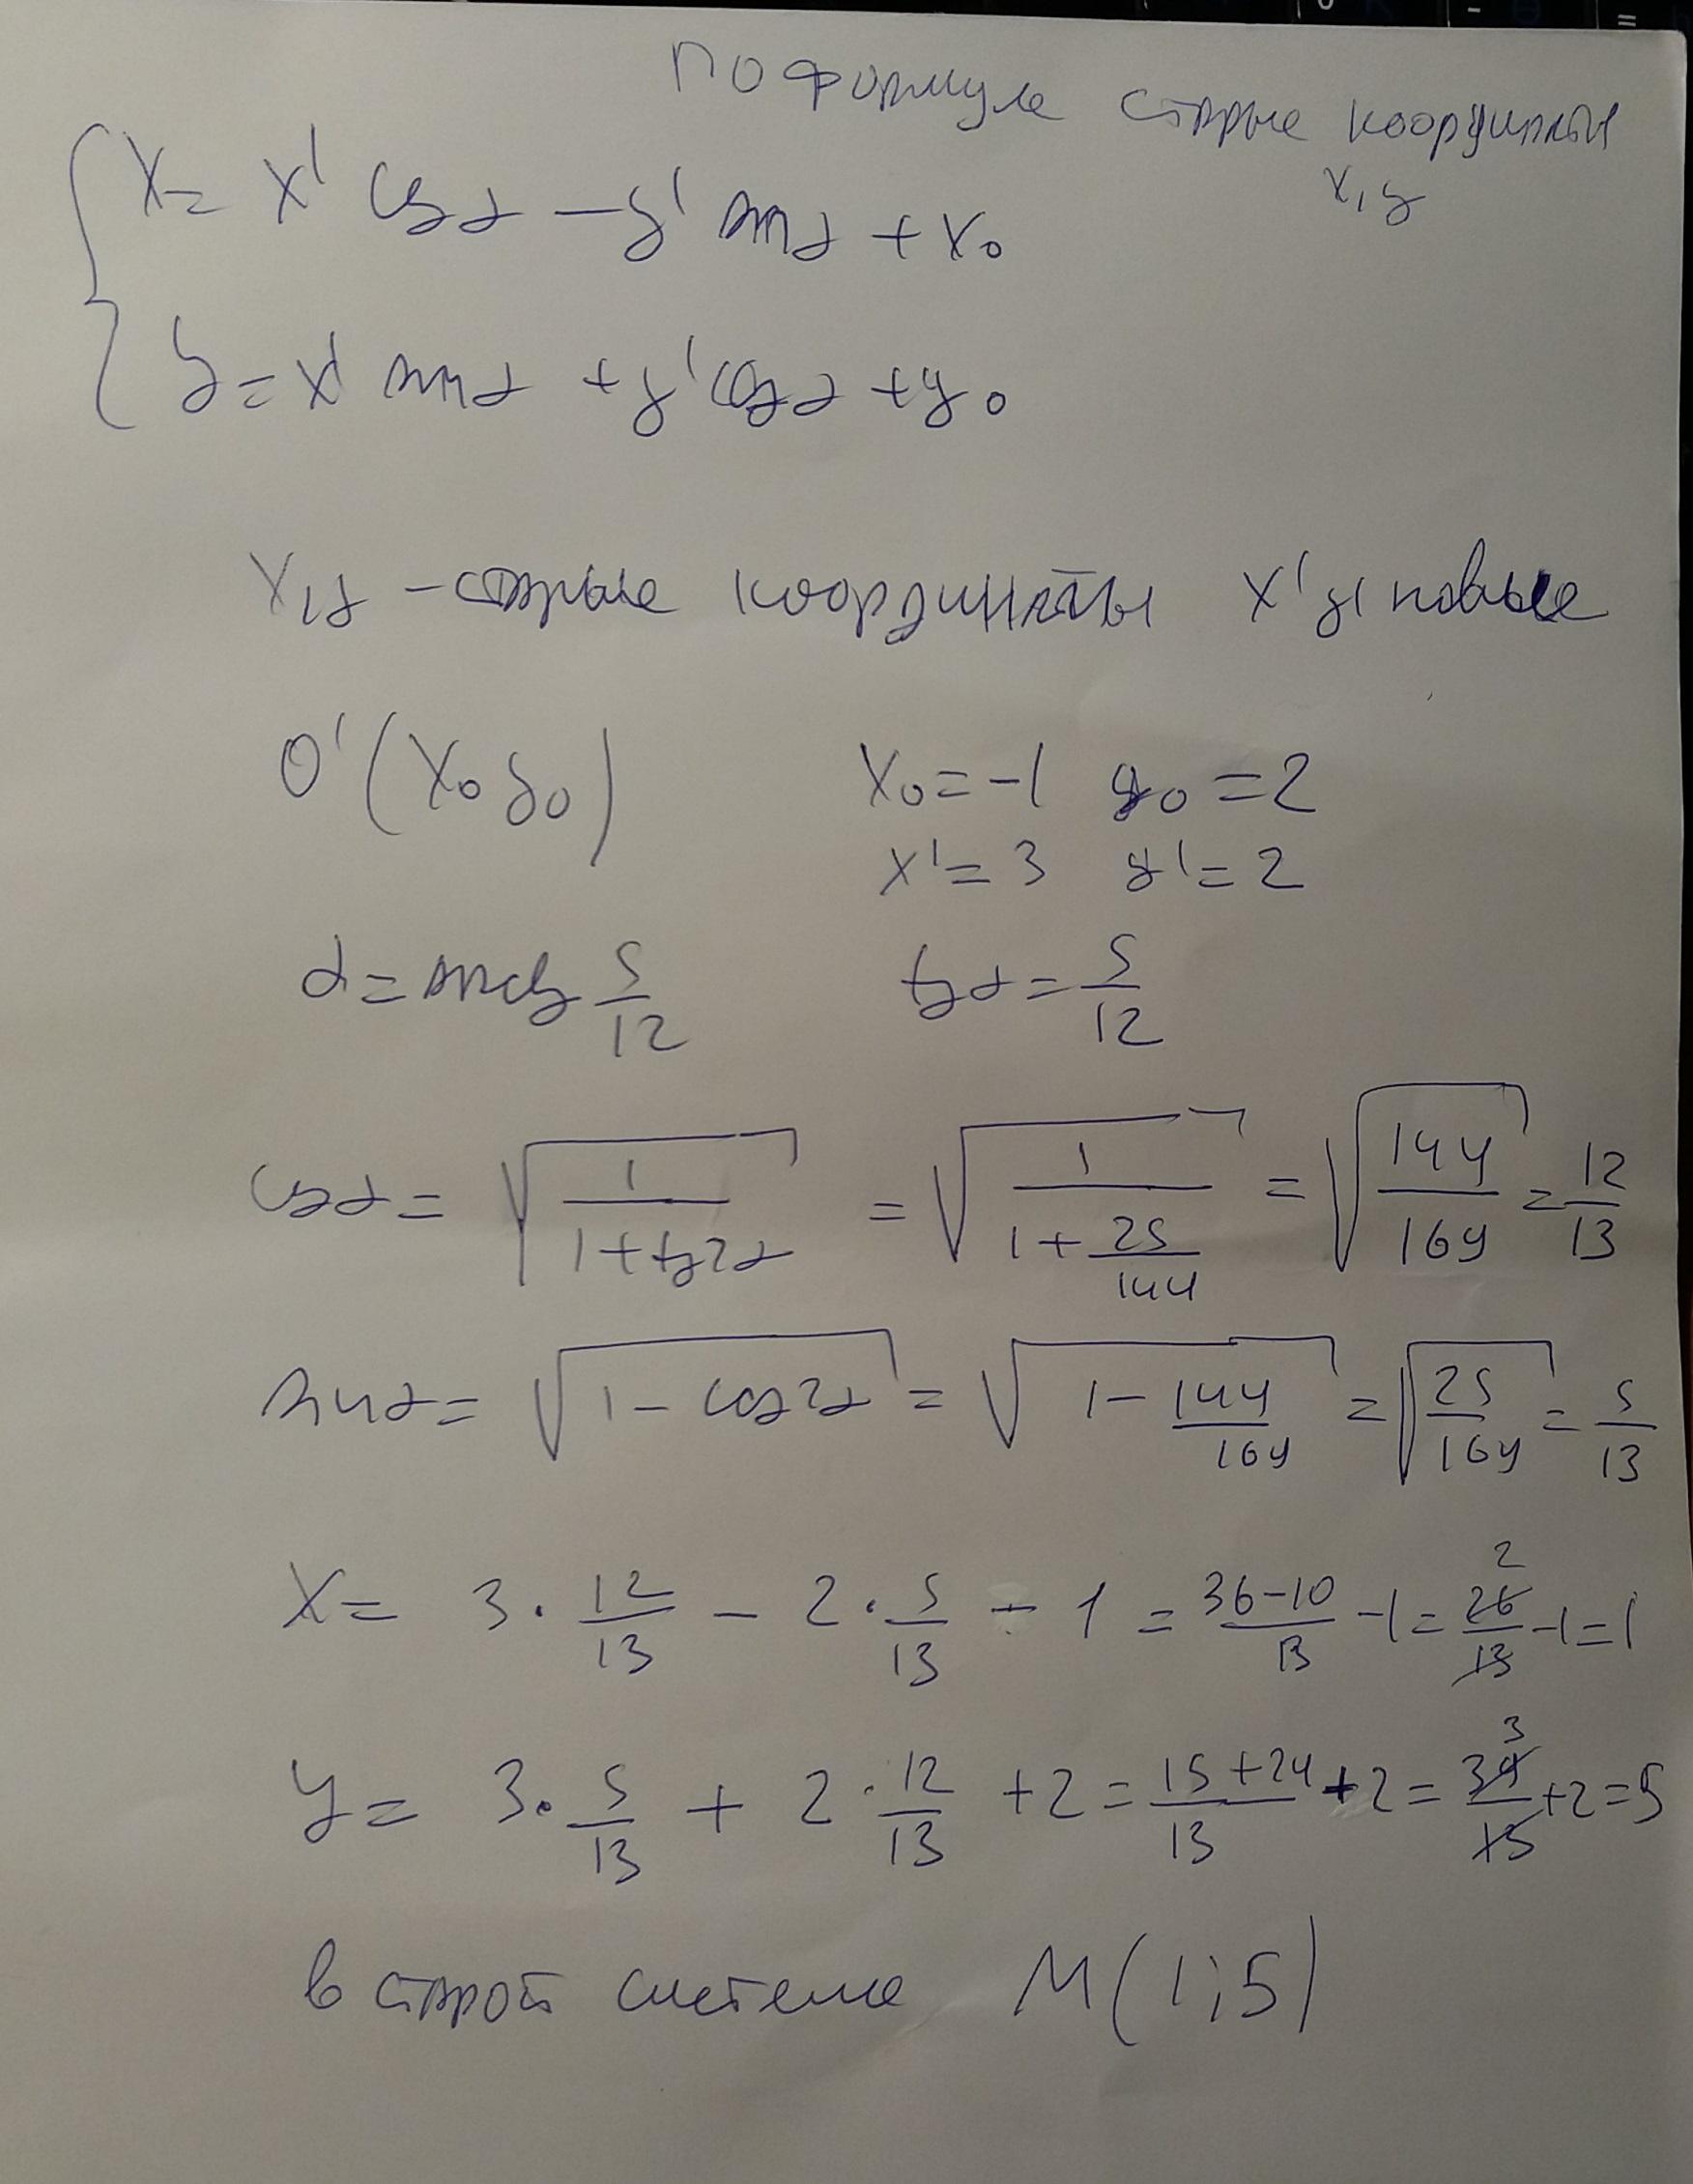 По формуле старые координаты
x, y
x = x' cos α – y' sin α + x₀
y = x' sin α + y' cos α + y₀
x, y – старые координаты x' y' новые
O' (x₀ y₀) x₀ = –1 y₀ = 2
x' = 3 y' = 2
α = arctg 5/12 tg α = 5/12
cos α = √(1/(1 + tg²α)) = √(1/(1 + 25/144)) = √(144/169) = 12/13
sin α = √(1 – cos²α) = √(1 – 144/169) = √(25/169) = 5/13
X = 3 · 12/13 – 2 · 5/13 – 1 = (36–10)/13 – 1 = 26/13 – 1 = 1
y = 3 · 5/13 + 2 · 12/13 + 2 = (15+24)/13 + 2 = 39/13 + 2 = 5
в старой системе M(1;5)